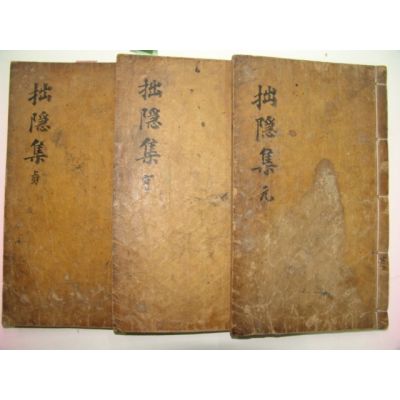 拙隱集 元
拙隱集 亨
拙隱集 貞